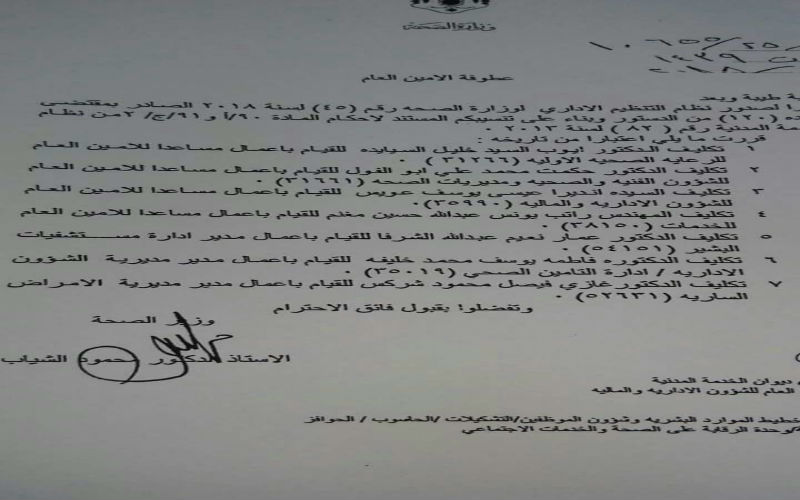 وزارة الصحة
١٠٦٥٥/٢٥/
١٤٣٩
٢٠١٨/
عطوفة الامين العام
طيبة وبعد
لصدور نظام التنظيم الاداري لوزارة الصحه رقم (٤٥) لسنة ٢٠١٨ الصادر بمقتضى
(١٢٠) من الدستور وبناء على تنسيبكم المستند لاحكام المادة ٩٠/أ و٩١/ج/٢ من نظام
المدنية رقم (٨٢) لسنة ٢٠١٣ .
قررت ما يلي اعتبارا من تاريخه :
١ تكليف الدكتور ايوب السيد خليل السيايده للقيام باعمال مساعدا للامين العام
للرعايه الصحيه الاوليه (٣١٢٦٦) .
٢ تكليف الدكتور حكمت محمد علي ابو الفول للقيام باعمال مساعدا للامين العام
للشؤون الفنيه والصحيه ومديريات الصحه (٣١٦٦١) .
٣ تكليف السيده انديرا عيسى يوسف عويس للقيام باعمال مساعدا للامين العام
للشؤون الاداريه والماليه (٣٥٩٩٠) .
٤ تكليف المهندس راتب يونس عبدالله حسين مغنم للقيام باعمال مساعدا للامين العام
للخدمات (٣٨١٥٠) .
٥ تكليف الدكتور عمار نعيم عبدالله الشرفا للقيام باعمال مدير ادارة مستشفيات
البشير (٥٤١٥١) .
٦ تكليف الدكتوره فاطمه يوسف محمد خليفه للقيام باعمال مدير مديرية الشؤون
الاداريه / ادارة التامين الصحي (٣٥٠١٩) .
٧ تكليف الدكتور غازي فيصل محمود شركس للقيام باعمال مدير مديرية الامراض
الساريه (٥٢٦٣١) .
وتفضلوا بقبول فائق الاحترام
وزير الصحة
الاستاذ الدكتور محمود الشياب
ديوان الخدمة المدنية
العام للشؤون الاداريه والماليه
الموارد البشريه وشؤون الموظفين/التشكيلات /الحاسوب / الحوافز
/وحدة الرقابة على الصحة والخدمات الاجتماعي